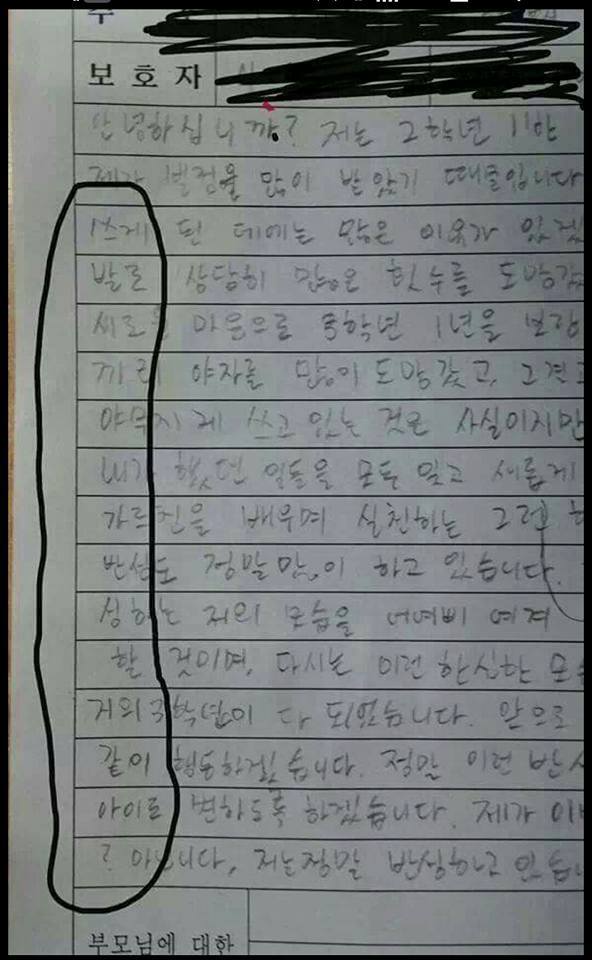 보호자
안녕하십니까? 저는 2학년 11반
제가 벌점을 많이 받았기 때문입니다
쓰게 된 데에는 많은 이유가 있겠
발로 상당히 많은 횟수를 도망갔
새로운 마음으로 3학년 1년을 보람
끼리 야자를 많이 도망갔고, 그건
야무지게 쓰고 있는 것은 사실이지만
내가 했던 일들을 모두 잊고 새롭게
가르침을 배우며 실천하는 그런
반성도 정말 많이 하고 있습니다.
성하는 저의 모습을 어여삐 여겨
할 것이며, 다시는 이런 한심한 모습
거의 3학년이 다 되었습니다. 앞으로
같이 행동하겠습니다. 정말 이런 반성
아이로 변하도록 하겠습니다. 제가 이
? 아닙니다, 저는 정말 반성하고 있습니
부모님에 대한